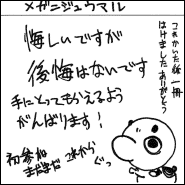 メガニジュウマル
これかいた後 一冊
はけました ありがとう
悔しいですが
後悔はないです
手にとってもらえるよう
がんばります!
初参加
まだまだ これから
ぐっ